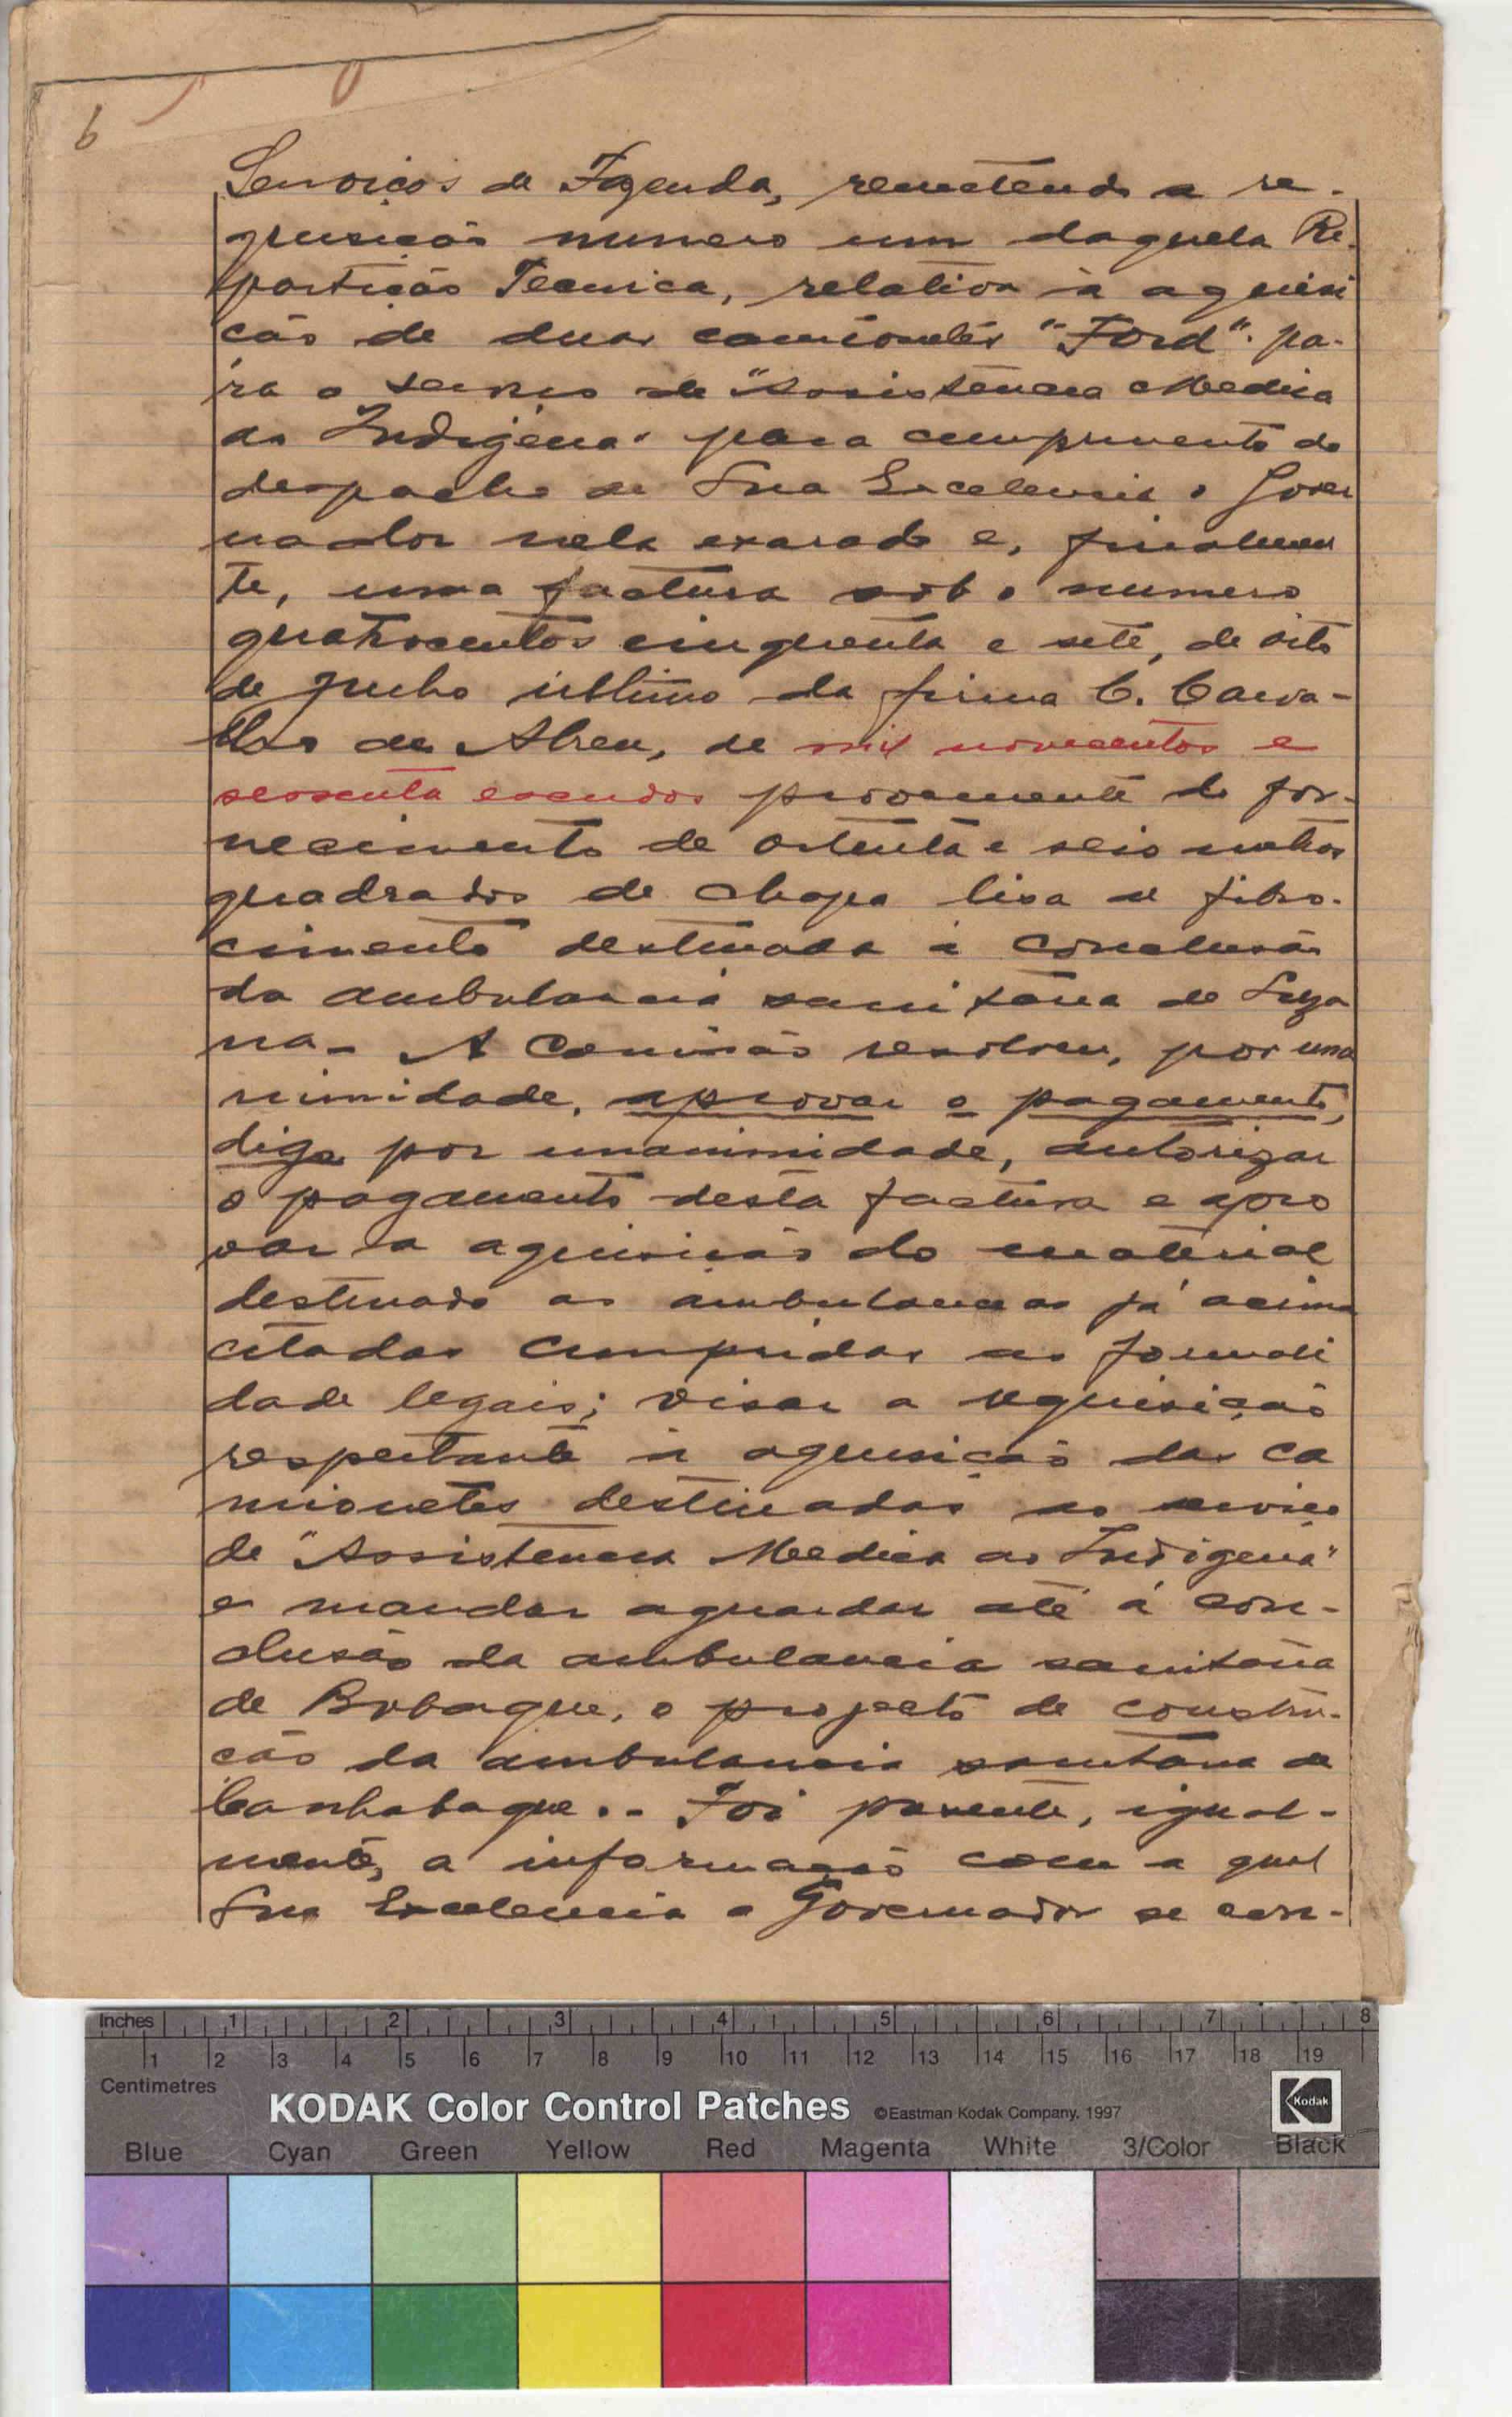 6
Serviços de Fazenda, remetendo a re-
quisição numero um daquela Re-
partição Tecnica, relativa à aquisi
ção de duas camionetes "Ford" pa-
ra o serviço de "Assistencia Medica
ao Indigena" para cumprimento do
despacho de Sua Excelencia o Gover
nador nela exarado e, finalmen
te, uma factura sob o numero
quatrocentos cinquenta e sete, de oito
de Junho ultimo da firma C. Carva-
lho de Abreu, de mil novecentos e
sessenta escudos proveniente do for-
necimento de oitenta e seis metros
quadrados de chapa lisa de fibro-
cimento destinada á conclusão
da ambulancia sanitária de Suza
na- A Comissão resolveu, por una
nimidade, aprovar o pagamento,
digo por unanimidade, autorizar
o pagamento desta factura e apro
var a aquisição do material
destinado as ambulancias já acima
citadas cumpridas as formali
dade legais; visar a requisição
respeitante á aquisição das ca
mionetes destinadas ao serviço
de "Assistencia Medica ao Indigena"
e mandar aguardar até á con-
clusão da ambulancia sanitária
de Bubaque, o projecto de constru-
ção da ambulancia sanitária de
Canhabaque.- Foi presente, igual-
mente, a informação com a qual
Sua Excelencia o Governador se con-
Inches 1 2 3 4 5 6 7 8
1 2 3 4 5 6 7 8 9 10 11 12 13 14 15 16 17 18 19
Centimetres
KODAK Color Control Patches ©Eastman Kodak Company, 1997 Kodak
Blue Cyan Green Yellow Red Magenta White 3/Color Black